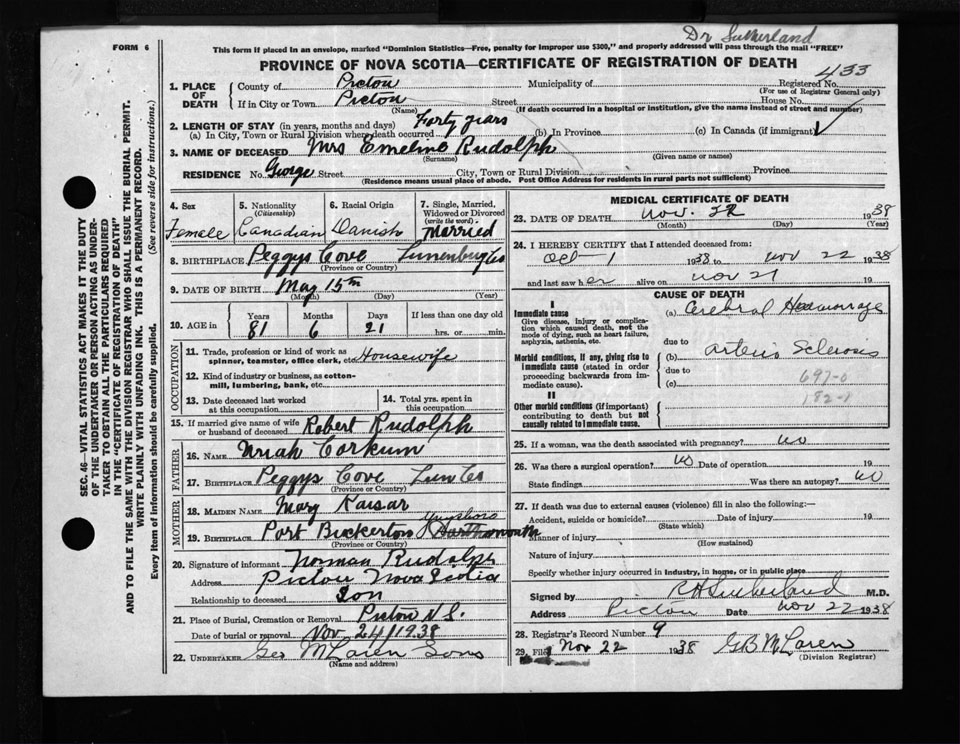 Dr Sutherland
FORM 6
This form if placed in an envelope, marked "Dominion Statistics—Free, penalty for improper use $300," and properly addressed will pass through the mail "FREE"
PROVINCE OF NOVA SCOTIA—CERTIFICATE OF REGISTRATION OF DEATH
SEC. 46—VITAL STATISTICS ACT MAKES IT THE DUTY
OF THE UNDERTAKER OR PERSON ACTING AS UNDER-
TAKER TO OBTAIN ALL THE PARTICULARS REQUIRED
IN THE "CERTIFICATE OF REGISTRATION OF DEATH"
AND TO FILE THE SAME WITH THE DIVISION REGISTRAR WHO SHALL ISSUE THE BURIAL PERMIT.
WRITE PLAINLY WITH UNFADING INK. THIS IS A PERMANENT RECORD.
Every item of Information should be carefully supplied. (See reverse side for instructions.)
1. PLACE OF DEATH County of Pictou Municipality of Registered No. 433
(For use of Registrar General only)
If in City or Town Pictou Street House No.
(Name) (If death occurred in a hospital or institution, give the name instead of street and number)
2. LENGTH OF STAY (in years, months and days)
(a) In City, Town or Rural Division where death occurred Forty years (b) In Province (c) In Canada (if immigrant)
3. NAME OF DECEASED Mrs Emeline Rudolph
(Surname) (Given name or names)
RESIDENCE No. George Street City, Town or Rural Division Province
(Residence means usual place of abode. Post Office Address for residents in rural parts not sufficient)
4. Sex Female
5. Nationality (Citizenship) Canadian
6. Racial Origin Danish
7. Single, Married, Widowed or Divorced (write the word) Married
8. BIRTHPLACE Peggys Cove Lunenburg Co
(Province or Country)
9. DATE OF BIRTH May 15th
(Month) (Day) (Year)
10. AGE in Years 81 Months 6 Days 21 If less than one day old hrs. or min.
OCCUPATION
11. Trade, profession or kind of work as spinner, teamster, office clerk, etc. Housewife
12. Kind of industry or business, as cotton-mill, lumbering, bank, etc.
13. Date deceased last worked at this occupation
14. Total yrs. spent in this occupation
15. If married give name of wife or husband of deceased Robert Rudolph
FATHER
16. Name Uriah Corkum
17. Birthplace Peggys Cove Lun Co
(Province or Country)
MOTHER
18. MAIDEN NAME Mary Kaisar
19. BIRTHPLACE Port Bickerton
(Province or Country)
20. Signature of informant Norman Rudolph
Address Pictou Nova Scotia
Relationship to deceased Son
21. Place of Burial, Cremation or Removal Pictou N S.
Date of burial or removal Nov 24/1938
22. UNDERTAKER Geo McLaren Sons
(Name and address)
MEDICAL CERTIFICATE OF DEATH
23. DATE OF DEATH Nov. 22 1938
(Month) (Day) (Year)
24. I HEREBY CERTIFY that I attended deceased from:
Oct 1 1938 to Nov 22 1938
and last saw her alive on Nov 21 19
CAUSE OF DEATH
I
Immediate cause
Give disease, injury or complication which caused death, not the mode of dying, such as heart failure, asphyxia, asthenia, etc.
(a) Cerebral Heamorrage
due to
Morbid conditions, if any, giving rise to immediate cause (stated in order proceeding backwards from immediate cause).
(b) arterio Sclerosis
due to
(c)
697-0
182-1
II
Other morbid conditions (if important) contributing to death but not causally related to immediate cause.
25. If a woman, was the death associated with pregnancy? no
26. Was there a surgical operation? no Date of operation 19
State findings Was there an autopsy? no
27. If death was due to external causes (violence) fill in also the following:
Accident, suicide or homicide? Date of injury 19
(State which)
Manner of injury
(How sustained)
Nature of injury
Specify whether injury occurred in industry, in home, or in public place
Signed by R H Sutherland M.D.
Address Pictou Date Nov 22 1938
28. Registrar's Record Number 9
29. Filed Nov 22 1938 G B McLaren
(Division Registrar)